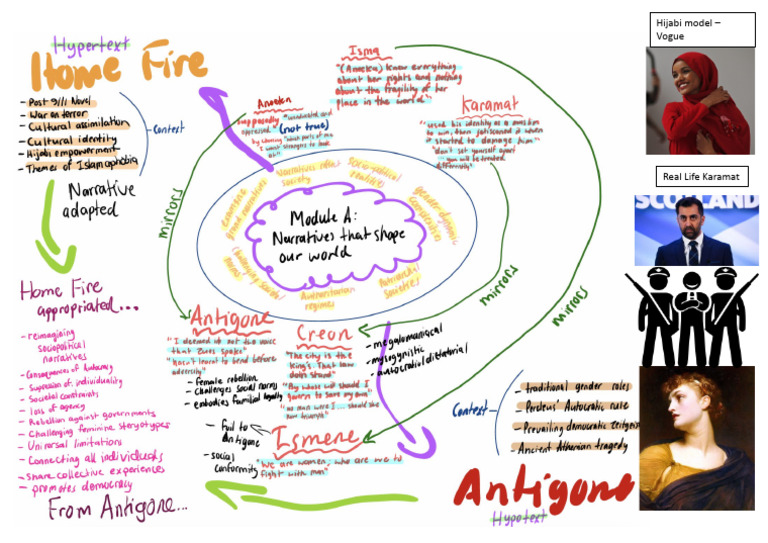 Hypertext
Home Fire
- Post 9/11 Novel
- War on terror
- Cultural assimilation
- Cultural identity
- Hijabi empowerment
- Themes of Islamophobia
Context
Narrative
adapted
Home Fire
appropriated...
- reimagining
sociopolitical
narratives
- Consequences of Autocracy
- Supression of individuality
- Societal constraints
- loss of agency
- Rebellion against governments
- Challenging feminine steryotypes
- Universal limitations
- Connecting all individuals
- Share collective experiences
- promotes democracy
From Antigone...
Isma
"(Aneeka) knew everything
about her rights and nothing
about the fragility of her
place in the world"
Aneeka
supposedly
oppressed
(not true)
Karamat
to win, then jettisoned it when
it started to damage him"
"don't set yourself apart
you will be treated
differently"
mirrors
mirrors
mirrors
Narratives reflect
Society
Socio-political
realities
gender dynamic
Patriarchal
Societies
Authoritarian
regimes
Challenging societal
norms
grand narratives
Module A:
Narratives that shape
our world
Antigone
"I deemed it not the voice
that Zues spoke"
"Hasn't learnt to bend before
adversity"
- female rebellion
- Challenges social norms
- embodies familial loyalty
Creon
"The city is the
king's. That law
"By whose will should I
govern to save my own"
- megalomaniacal
- mysogynistic
- autocratic/dictatorial
- foil to
Antigone
- social
conformity
Ismene
"We are women, who are we to
fight with men"
Context
- traditional gender roles
- Pericles' Autocratic rule
- Prevailing democratic zeitgeist
- Ancient Athenian tragedy
Antigone
Hypotext
Hijabi model –
Vogue
Real Life Karamat
SCOTLAND